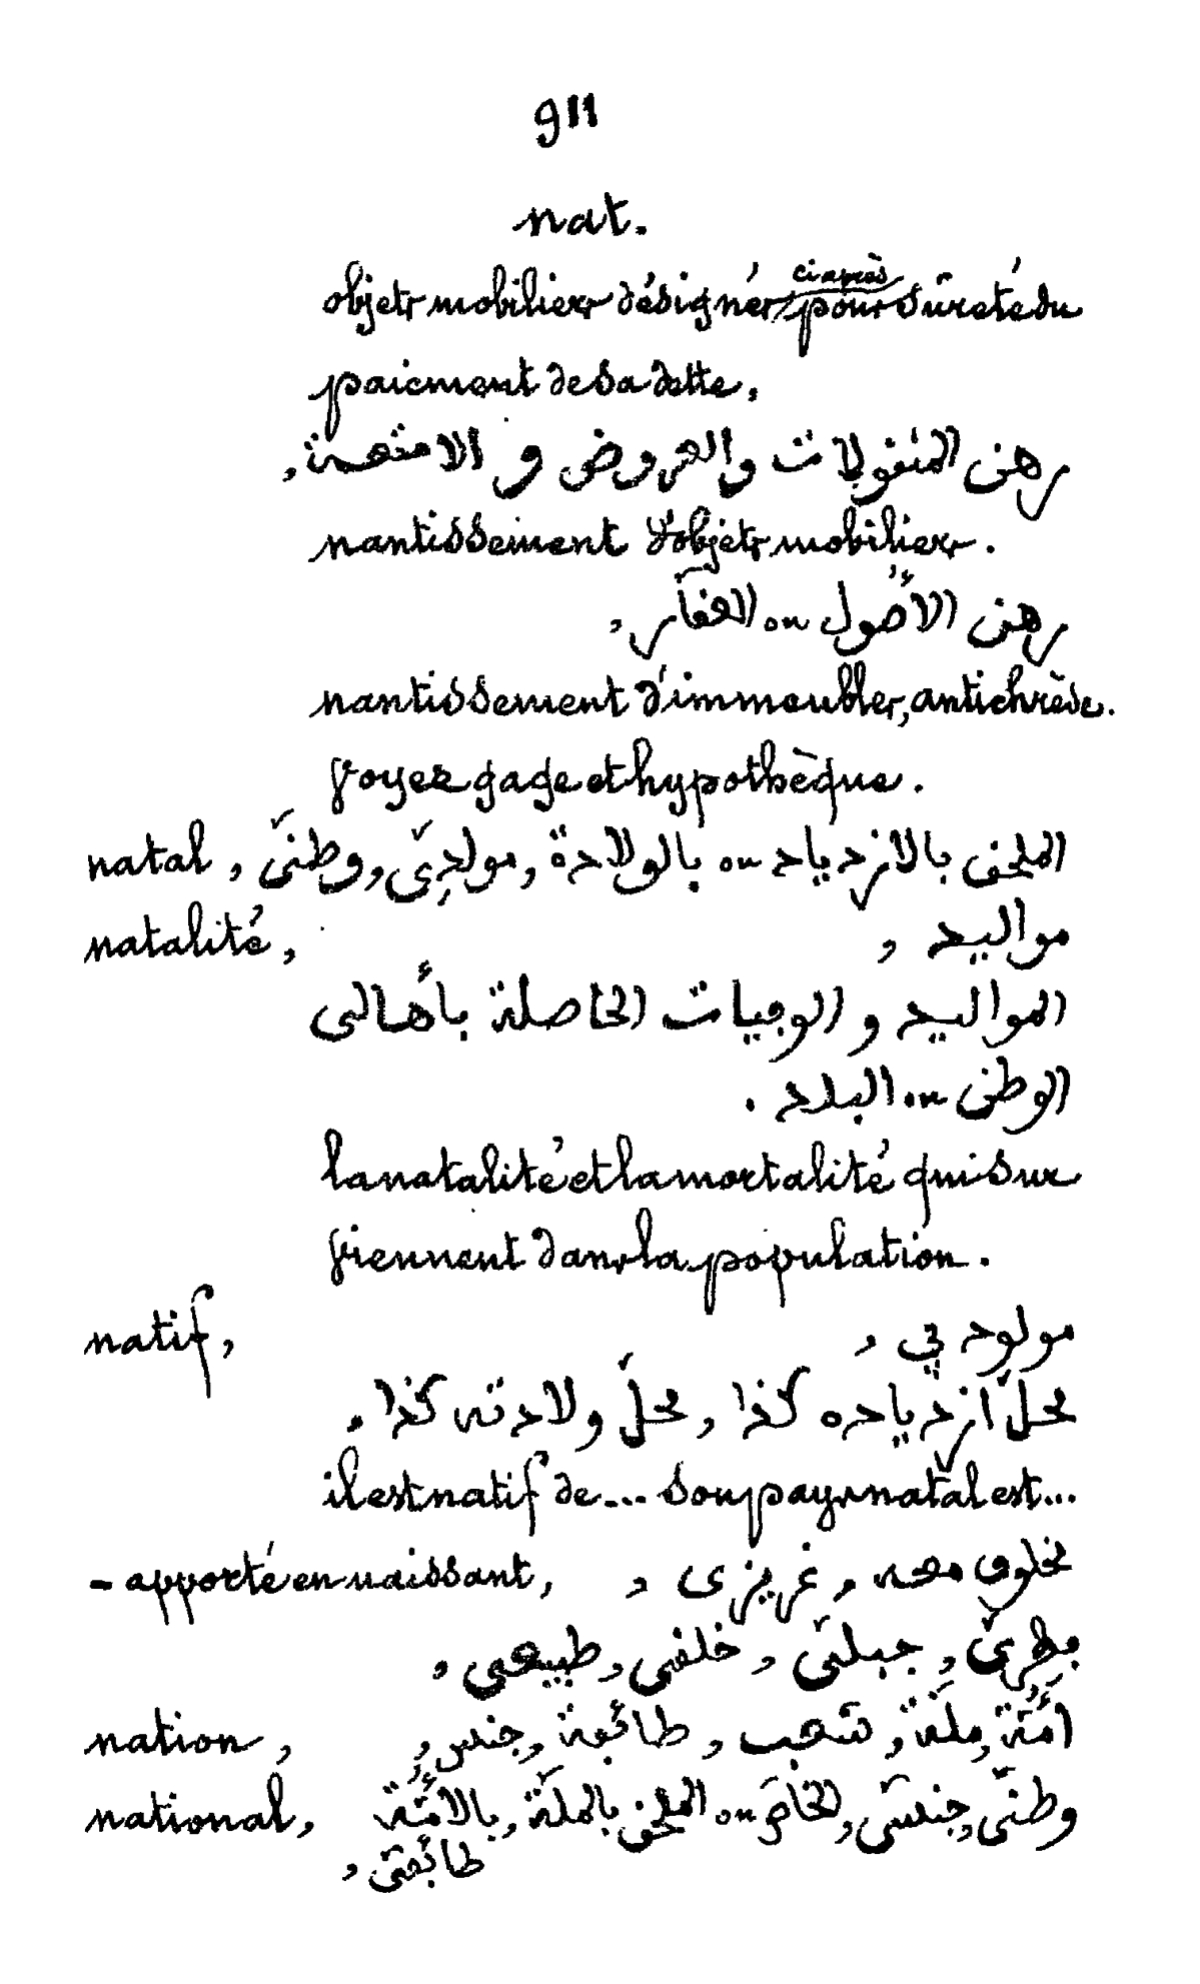 911
nat.
objets mobiliers désignés ci après pour sûreté du
paiement de sa dette,
رهن المنقولات والعروض و الامتعة,
nantissement d'objets mobiliers.
رهن الأصول ou العقار,
nantissement d'immeubles, antichrèse.
Voyez gage et hypothèque.
natal, الملحق بالازدياد ou بالولادة, مولدِىّ, وطنىّ
natalité, مواليد,
المواليد و الوفيات الحاصلة بأهالى
الوطن ou البلاد.
la natalité et la mortalité qui sur
viennent dans la population.
natif, مولود في,
محلّ ازدياده كذا, محلّ ولادته كذا.
il est natif de... son pays natal est...
- apporté en naissant, مخلوق معه, غريزى,
فِطرِىّ, جبلّى, خلقى, طبيعى,
nation, أمّة, ملّة, شعب, طائفة, جنس,
national, وطنىّ, جنسىّ, الخاصّ ou الملحق بالملّة, بالأمّة
طائفىّ,